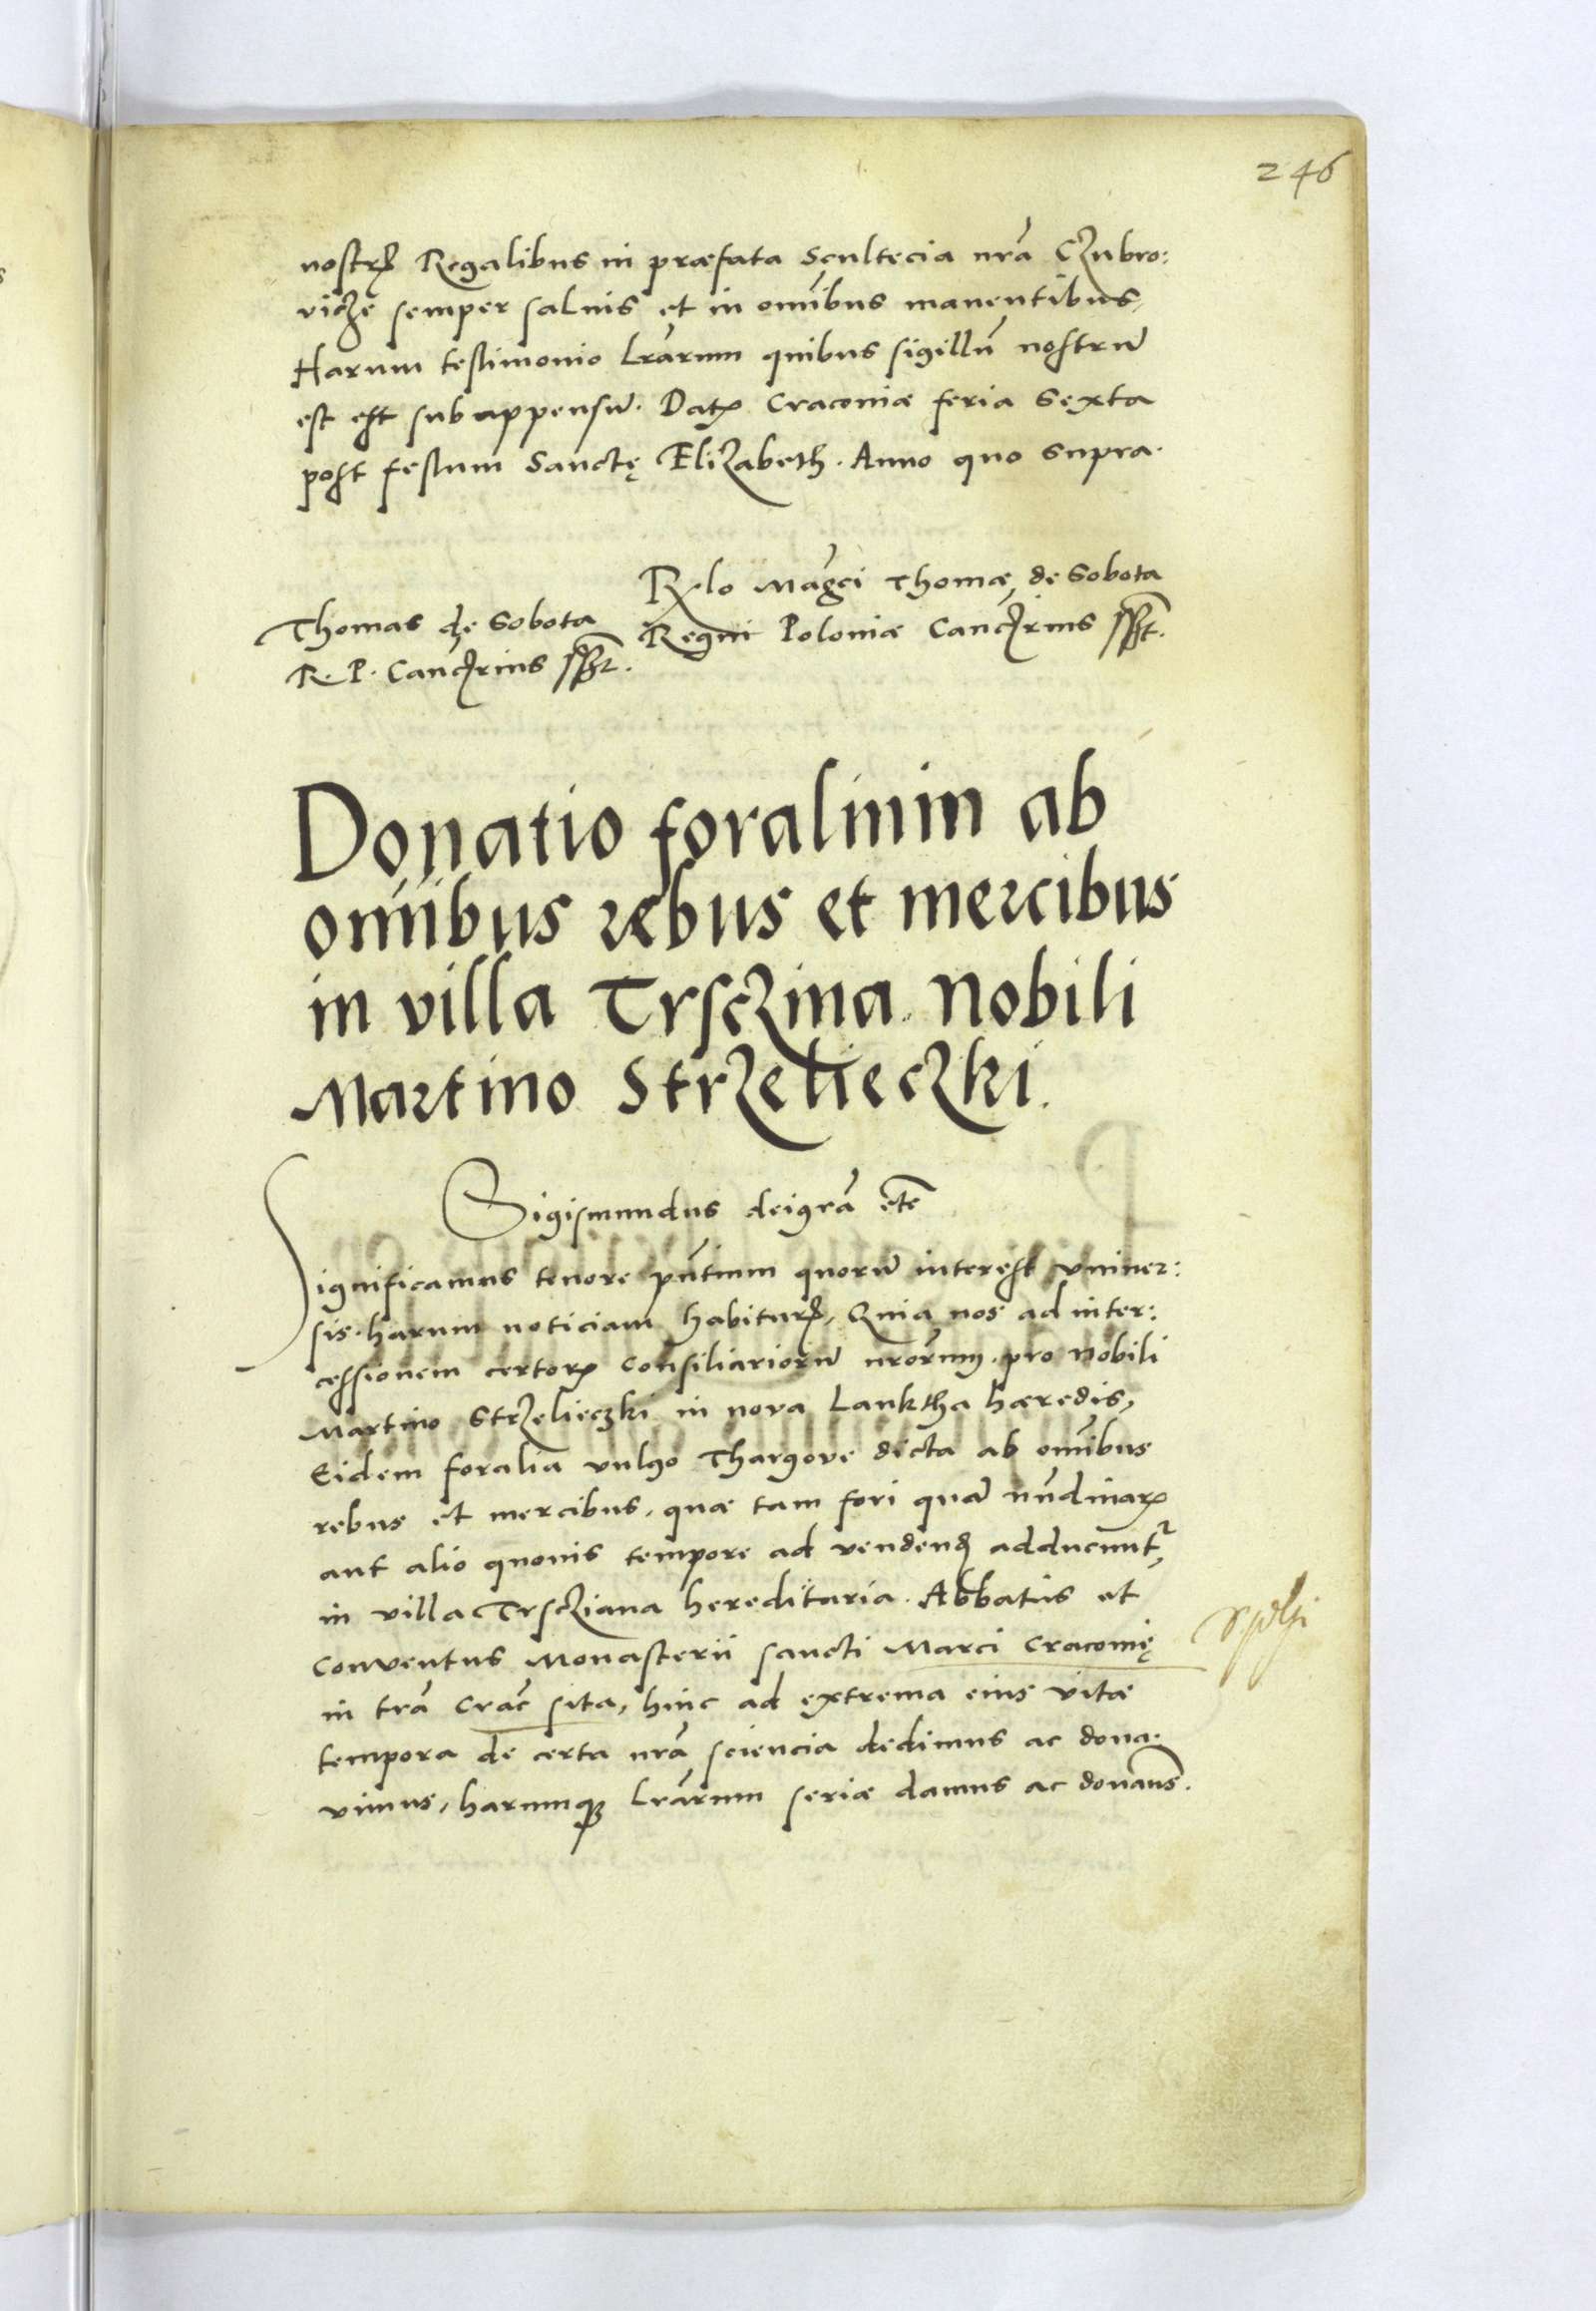 246
nostrꝭ Regalibus in præfata Scultecia nrã Czubro:
vicze semper saluis et in omĩbus manentibus,
Harum testimonio lr̃arum quibus sigillũ nostrũ
est est sub appensũ. Datꝝ Cracoviæ feria Sexta
post festum Sanctę Elizabeth. Anno quo supra.
Rꝫlo Mag̃ci Thomæ de Sobota
Regni Poloniæ Canc̃rius sspt.
Thomas de Sobota
R. P. Canc̃rius sspt.
Donatio foralium ab
om̃ibus rebus et mercibus
in villa Trsczina Nobili
Martino Strzelieczki.
Sigismundus dei grã etc̃
Significamus tenore pñtium quorũ interest vniuer:
sis harum noticiam habiturꝭ, Quia nos ad inter:
cessionem certorꝝ Consiliariorũ nrõrum, pro Nobili
Martino Strzelieczki in nova Lanktha hæredis,
Eidem foralia vulgo Thargove dicta ab omĩbus
rebus et mercibus, quæ tam fori quã nũdinarꝝ
aut alio quovis tempore ad vendendũ adducunt̃,
in villa Trscziana hereditaria Abbatis et
Conventus Monasterii Sancti Marci Cracovię
in trã Crac̃ sita, hinc ad extrema eius vitæ
tempora de certa nrã sciencia dedimus ac dona:
vimus, harumqꝫ lr̃arum seriæ damus ac donam̃s.